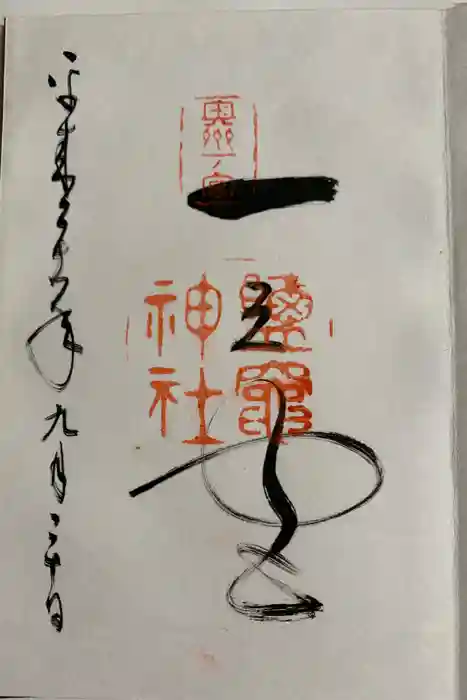 奥州一ノ宮
一之宮
鹽竈
神社
平成年九月二十日